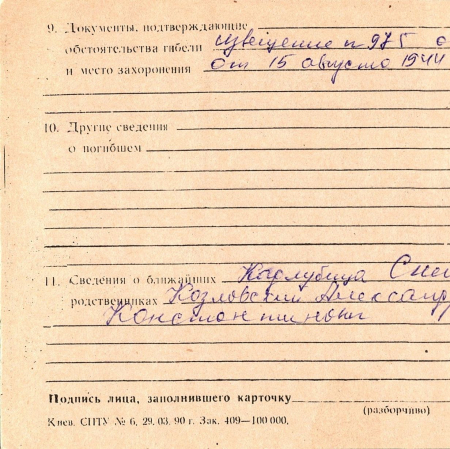 9. Документы, подтверждающие
обстоятельства гибели извещение н 975
и место захоронения от 15 августа 1944
10. Другие сведения
о погибшем
11. Сведения о ближайших
родственниках Козловский Александр
Константинович
Подпись лица, заполнившего карточку
(разборчиво)
Киев. СПТУ № 6, 29. 03. 90 г. Зак. 409—100 000.